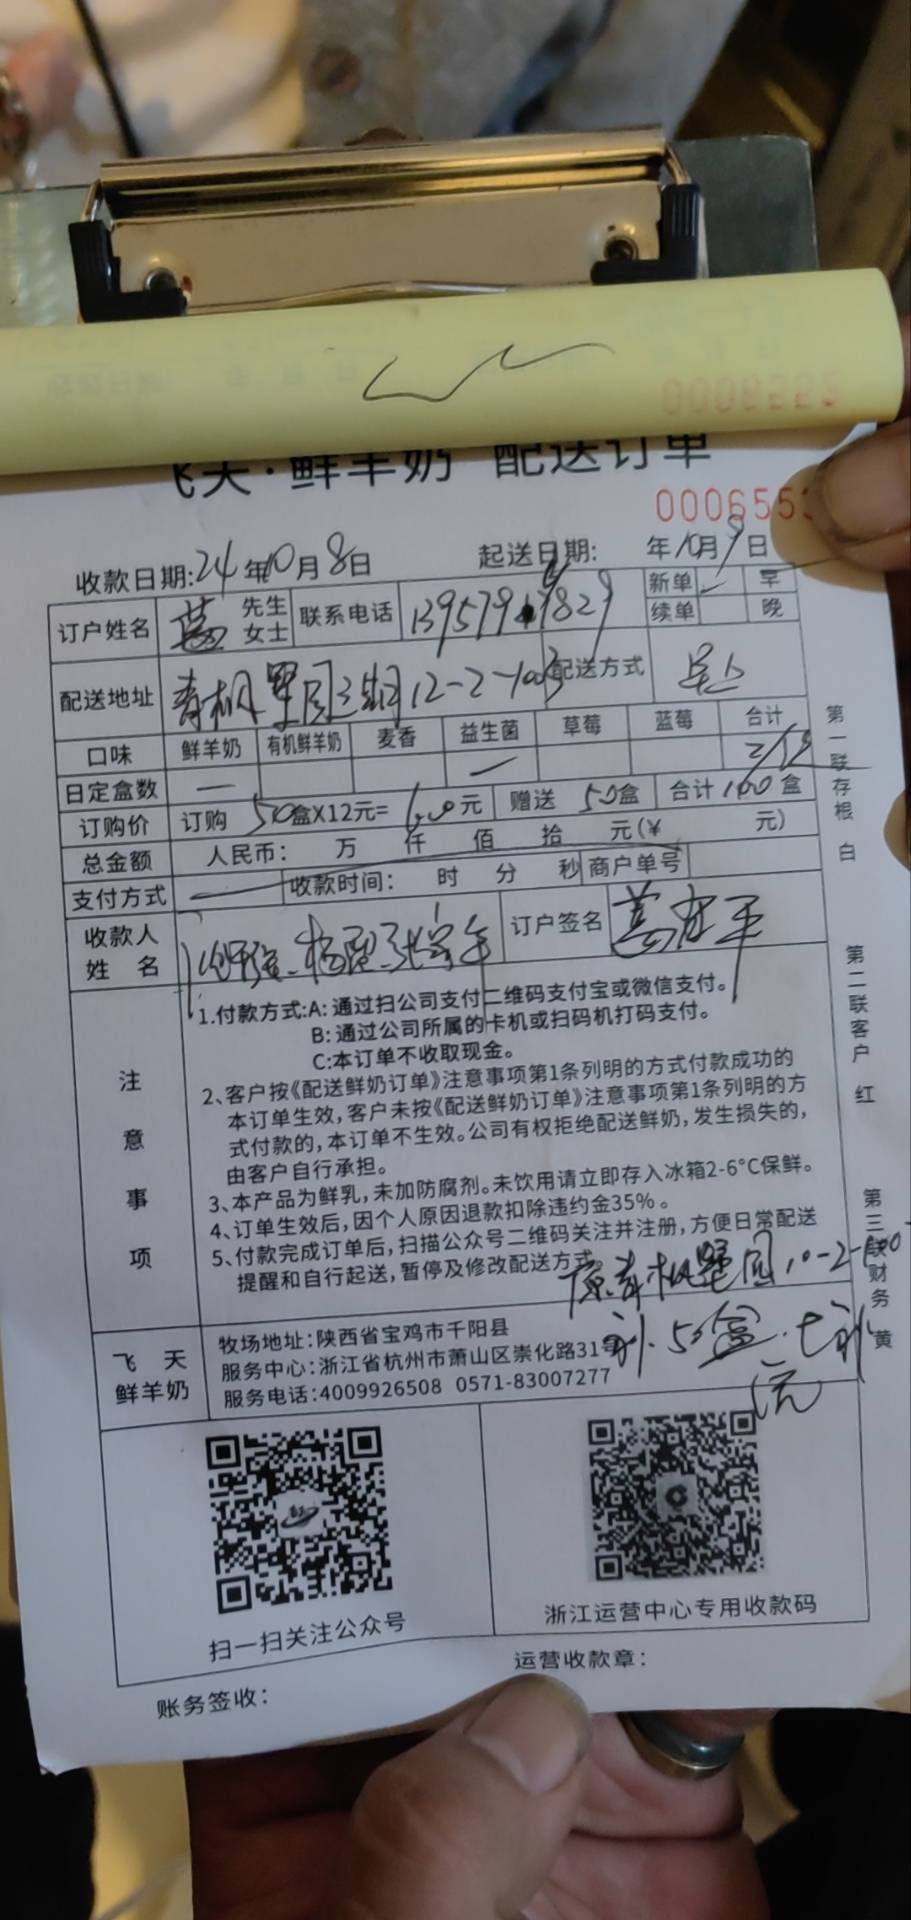 0008225
飞天·鲜羊奶 配送订单
000655
收款日期:24年10月8日 起送日期: 年10月9日
订户姓名 先生 女士 联系电话 新单 早
续单 晚
配送地址 12-2-1003 配送方式
口味 鲜羊奶 有机鲜羊奶 麦香 益生菌 草莓 蓝莓 合计
日定盒数 一 一
订购价 订购 50盒X12元=600元 赠送 50盒 合计100盒
总金额 人民币: 万 仟 佰 拾 元(¥ 元)
支付方式 收款时间: 时 分 秒 商户单号
收款人姓名 订户签名
注意事项
1.付款方式:A:通过扫公司支付二维码支付宝或微信支付。
B:通过公司所属的卡机或扫码机打码支付。
C:本订单不收取现金。
2、客户按《配送鲜奶订单》注意事项第1条列明的方式付款成功的
本订单生效,客户未按《配送鲜奶订单》注意事项第1条列明的方
式付款的,本订单不生效。公司有权拒绝配送鲜奶,发生损失的,
由客户自行承担。
3、本产品为鲜乳,未加防腐剂。未饮用请立即存入冰箱2-6°C保鲜。
4、订单生效后,因个人原因退款扣除违约金35%。
5、付款完成订单后,扫描公众号二维码关注并注册,方便日常配送
提醒和自行起送,暂停及修改配送方式。
飞天鲜羊奶
牧场地址:陕西省宝鸡市千阳县
服务中心:浙江省杭州市萧山区崇化路31号
服务电话:4009926508 0571-83007277
50盒
扫一扫关注公众号
浙江运营中心专用收款码
账务签收:
运营收款章:
第一联存根 白
第二联客户 红
第三联财务 黄